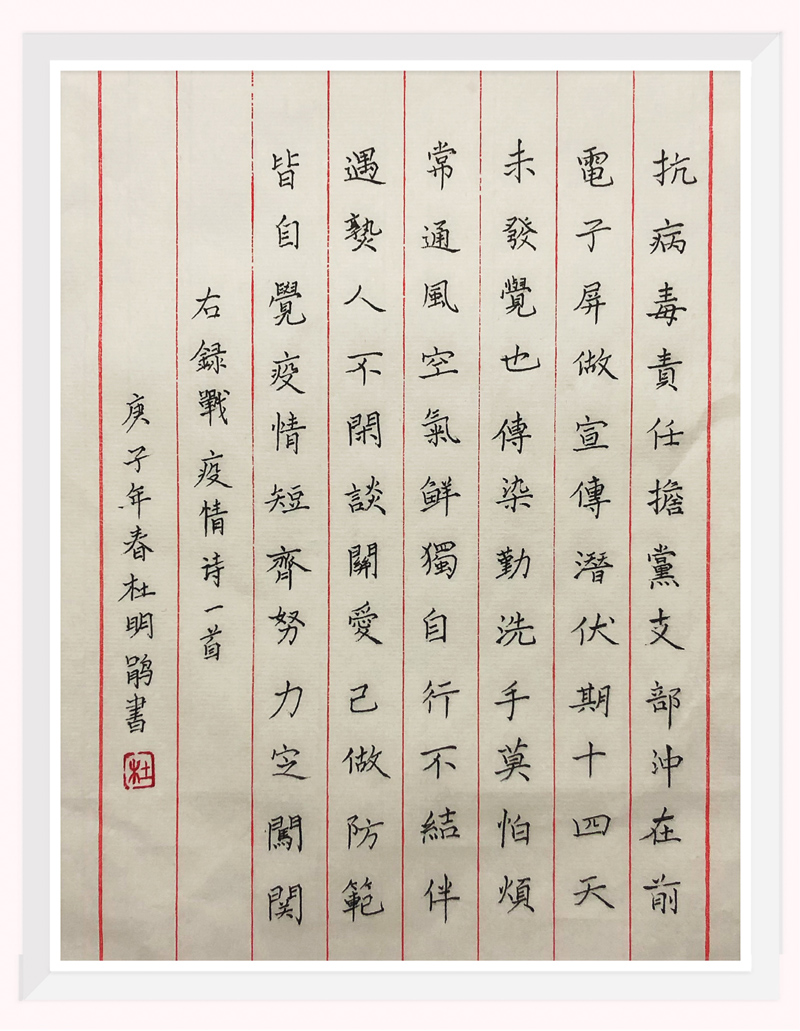 抗病毒責任擔黨支部沖在前
電子屏做宣傳潛伏期十四天
未發覺也傳染勤洗手莫怕煩
常通風空氣鮮獨自行不結伴
遇熱人不閑談關愛己做防範
皆自覺疫情短齊努力定闖関
右録戰疫情诗一首
庚子年春杜明鹃書
杜